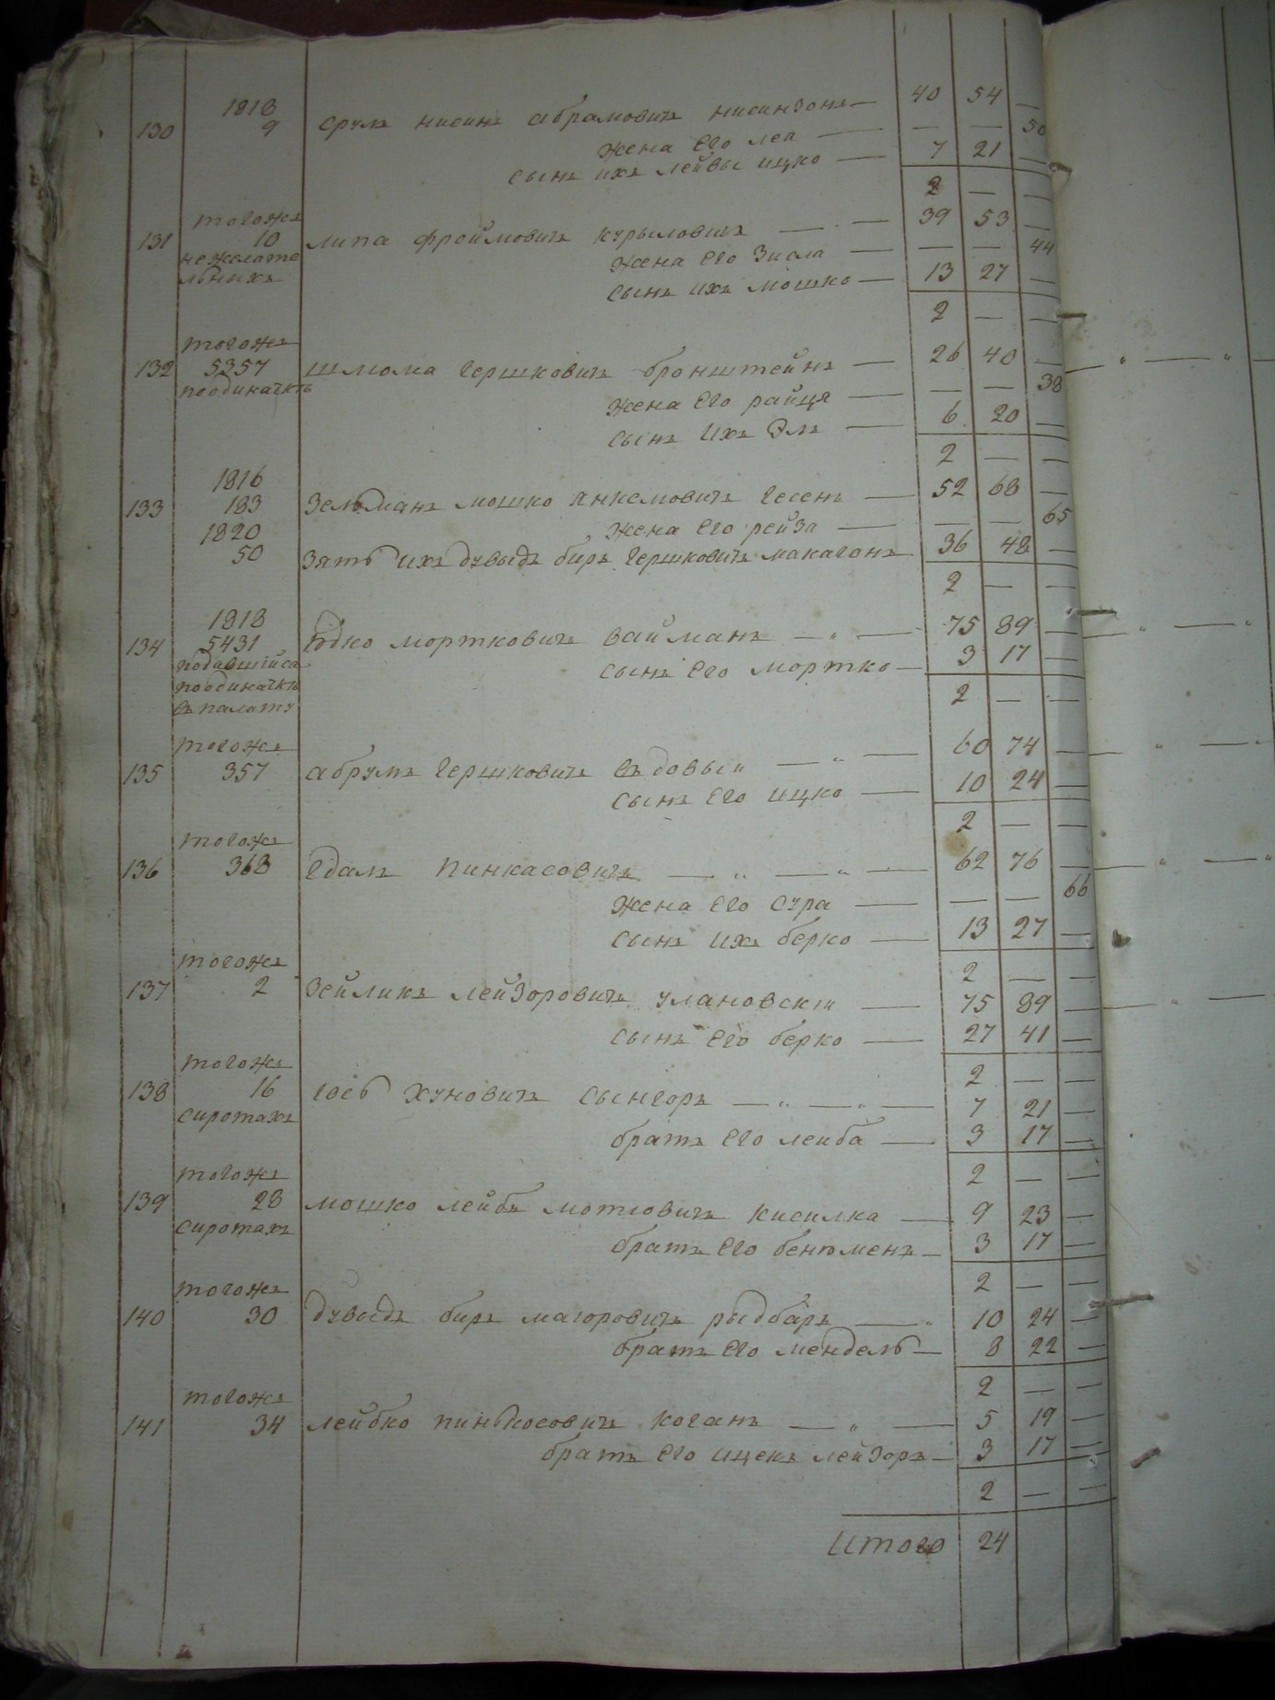 1818 40 54 —
130 9 Сруль Нисинъ Абрамовичъ Нисинзонъ —
жена его Леа — — — 50
сынъ ихъ Лейвы Ицко — 7 21 —
2 — —
тогожъ 39 53 —
131 10 Липа Фроймовичъ Курыловичъ —
жена его Зисла — — — 44
сынъ ихъ Мошко — 13 27 —
2 — —
тогожъ
132 5357 Шмома Гершковичъ Бронштейнъ — 26 40 —
поодиначкѣ
жена его Райця — — — 38
сынъ ихъ Эль — 6 20 —
2 — —
1816
133 183 Зельманъ Мошко Янкемовичъ Гесенъ — 52 68 —
1820 жена его Рейза — — — 65
50 зять ихъ Дувыдъ Биръ Гершковичъ Макагонъ — 36 48 —
2 — —
1818
134 5431 Юдко Мортковичъ Вайманъ — " — 75 89 —
подавшійся
сынъ его Мортко — 3 17 —
поодиначкѣ
въ палату
2 — —
тогожъ
135 357 Абрумъ Гершковичъ вдовый — " — 60 74 —
сынъ его Ицко — 10 24 —
2 — —
тогожъ
136 368 Едаль Пинкасовичъ — " — " — 62 76 —
жена его Сура — — — 66
сынъ ихъ Берко — 13 27 —
2 — —
тогожъ
137 2 Зейликъ Лейзоровичъ Улановскій — 75 89 —
сынъ его Берко — 27 41 —
2 — —
тогожъ
138 16 Іось Хуновичъ Сынгоръ — " — " — 7 21 —
сиротахъ
братъ его Лейба — 3 17 —
2 — —
тогожъ
139 28 Мошко Лейбъ Мотіовичъ Кисилка — 9 23 —
сиротахъ
братъ его Беньоменъ — 3 17 —
2 — —
тогожъ
140 30 Дувыдъ Биръ Маіоровичъ Рыдбаръ — " 10 24 —
братъ его Мендель — 8 22 —
2 — —
тогожъ
141 34 Лейбко Пинькосовичъ Коганъ — " — 5 19 —
братъ его Ицекъ Лейзоръ — 3 17 —
2 — —
Итого 24